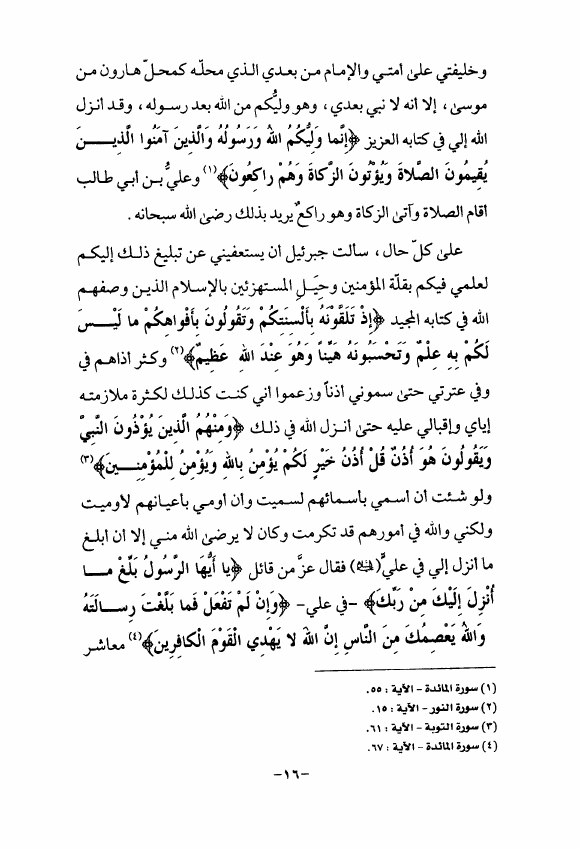 وخليفتي على أمتي والإمام من بعدي الذي محلّه كمحلّ هارون من
موسى، إلا أنه لا نبي بعدي، وهو وليُّكم من الله بعد رسوله، وقد أنزل
الله إلي في كتابه العزيز ﴿إِنَّما وَلِيُّكُمُ اللهُ وَرَسُولُهُ وَالَّذِينَ آمَنُوا الَّذِيـــنَ
يُقِيمُونَ الصَّلاةَ وَيُؤْتُونَ الزَّكاةَ وَهُمْ راكِعُونَ﴾(١) وعليُّ بن أبي طالب
أقام الصلاة وآتى الزكاة وهو راكعٌ يريد بذلك رضى الله سبحانه.
على كلّ حال، سألت جبرئيل أن يستعفيني عن تبليغ ذلك إليكم
لعلمي فيكم بقلّة المؤمنين وحِيَل المستهزئين بالإسلام الذين وصفهم
الله في كتابه المجيد ﴿إِذْ تَلَقَّوْنَهُ بِأَلْسِنَتِكُمْ وَتَقُولُونَ بِأَفْواهِكُمْ ما لَيْــسَ
لَكُمْ بِهِ عِلْمٌ وَتَحْسَبُونَهُ هَيِّناً وَهُوَ عِنْدَ اللهِ عَظِيمٌ﴾(٢) وكثر أذاهم في
وفي عترتي حتى سموني أذناً وزعموا أني كنت كذلك لكثرة ملازمته
إياي وإقبالي عليه حتى أنزل الله في ذلك ﴿وَمِنْهُمُ الَّذِينَ يُؤْذُونَ النَّبِيَّ
وَيَقُولُونَ هُوَ أُذُنٌ قُلْ أُذُنُ خَيْرٍ لَكُمْ يُؤْمِنُ بِاللهِ وَيُؤْمِنُ لِلْمُؤْمِنــينَ﴾(٣)
ولو شئت أن أسمي بأسمائهم لسميت وأن أومي بأعيانهم لأوميت
ولكني والله في أمورهم قد تكرمت وكان لا يرضى الله مني إلا أن أبلغ
ما أنزل إلي في عليّ(ﷺ) فقال عزّ من قائل ﴿يا أَيُّهَا الرَّسُولُ بَلِّغْ مـــا
أُنْزِلَ إِلَيْكَ مِنْ رَبِّكَ﴾ -في علي- ﴿وَإِنْ لَمْ تَفْعَلْ فَما بَلَّغْتَ رِســالَتَهُ
وَاللهُ يَعْصِمُكَ مِنَ النَّاسِ إِنَّ اللهَ لا يَهْدِي الْقَوْمَ الْكافِرِينَ﴾(٤) معاشر
(١) سورة المائدة - الآية: ٥٥.
(٢) سورة النور - الآية: ١٥.
(٣) سورة التوبة - الآية: ٦١.
(٤) سورة المائدة - الآية: ٦٧.
-١٦-